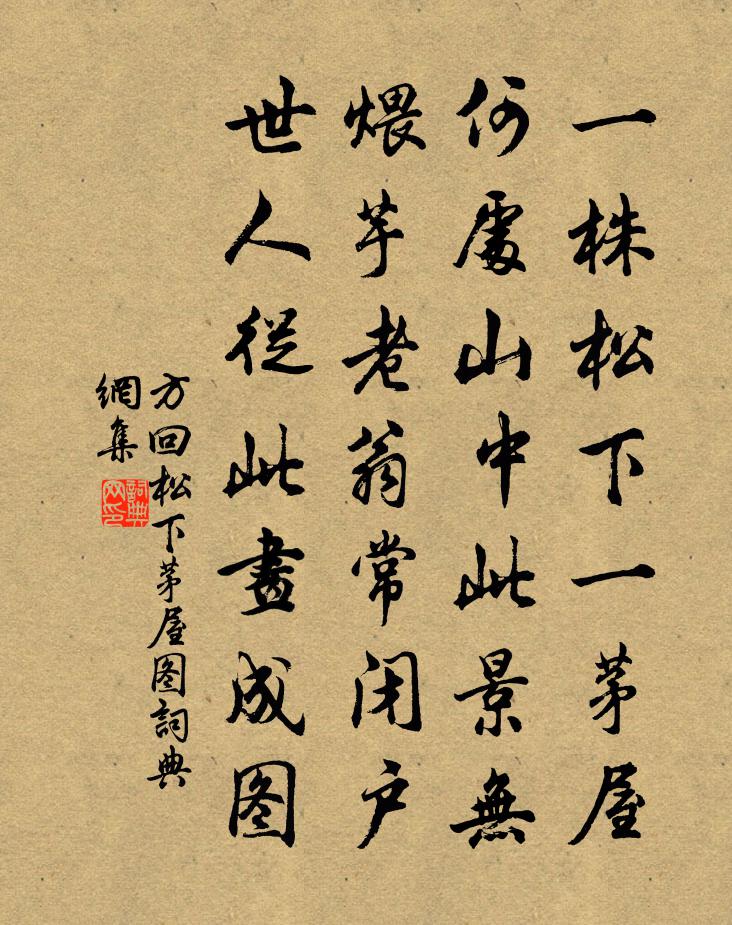 一株松下一茅屋
何處山中此景無
煨芋老翁常闭户
世人從此畫成图
方回松下茅屋图詞典
網集
詞典
网印